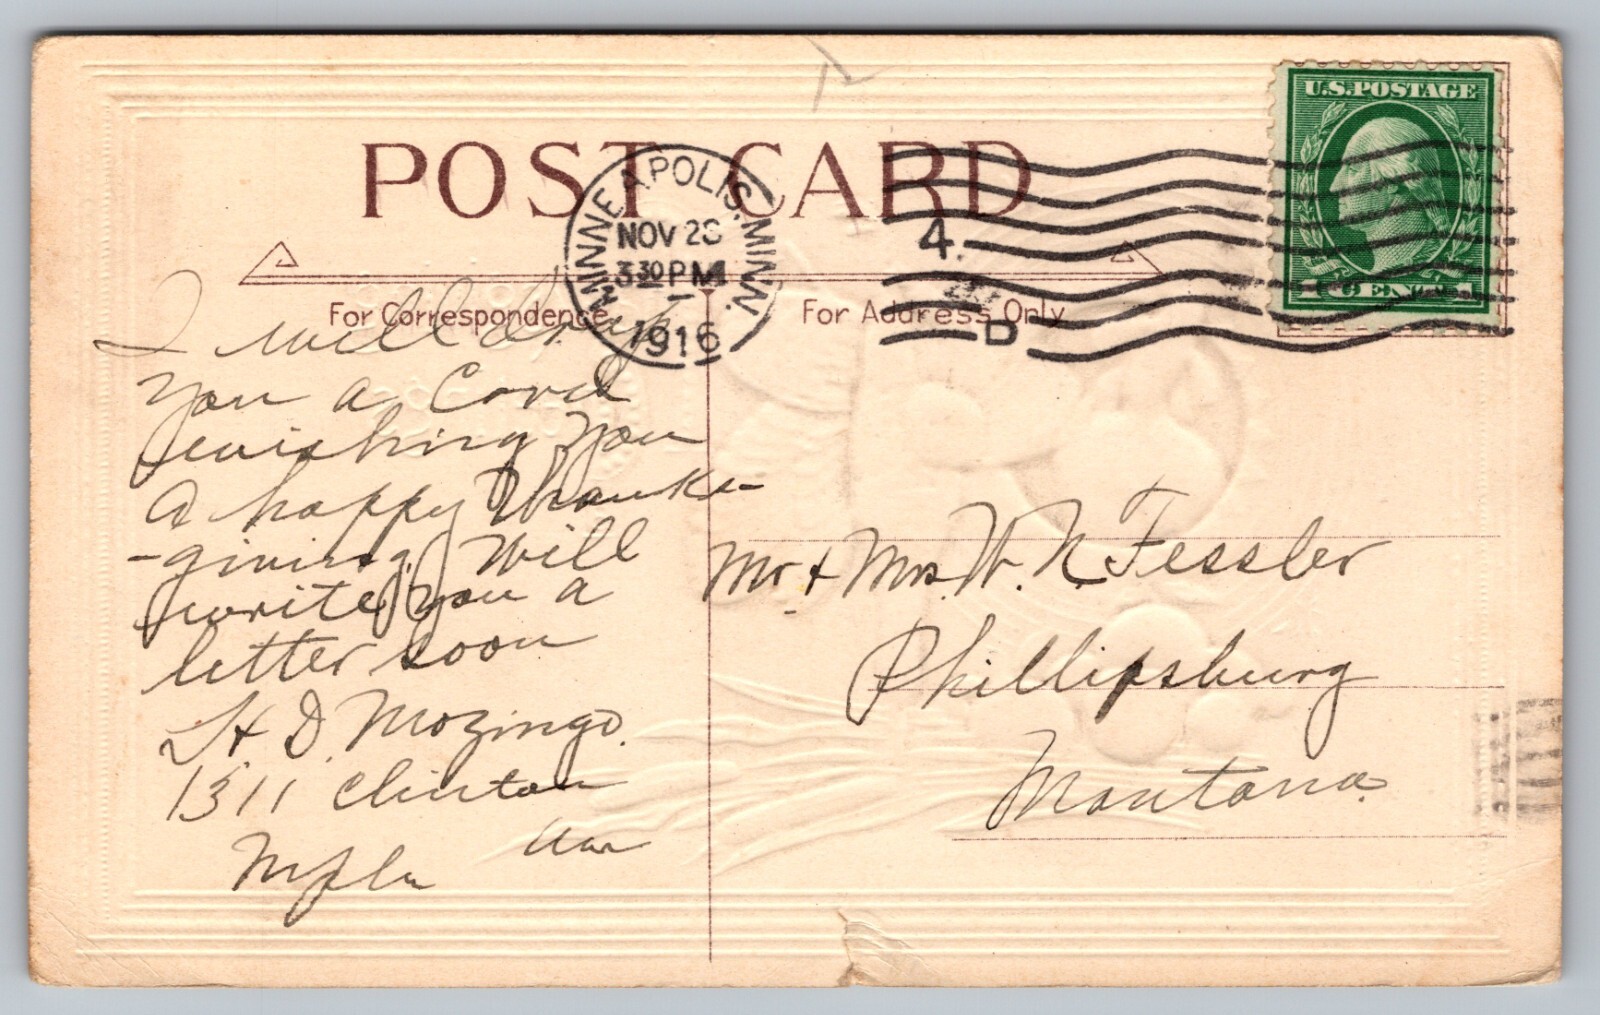 POST CARD
MINNEAPOLIS, MINN.
NOV 28
3 30 PM
1916
4
D
U.S. POSTAGE
1 CENT 1
For Correspondence
For Address Only
I will drop
you a Card
wishing you
a happy Thanks-
-giving. Will
write you a
letter soon
H D. Mozingo.
1311 Clinton
Ave
Mpls
Mr. & Mrs. W. N. Fessler
Phillipsburg
Montana